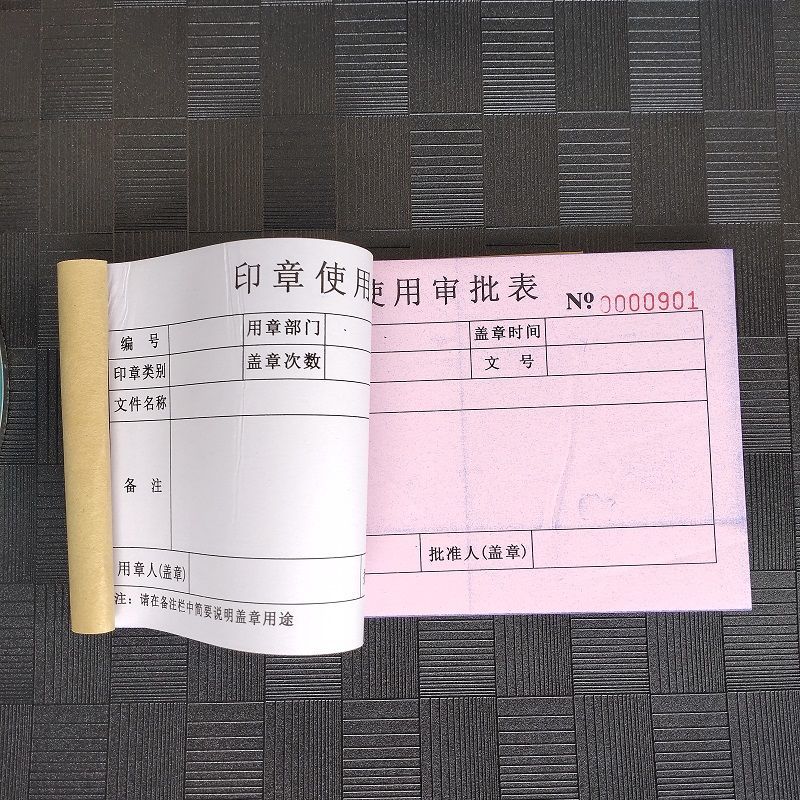 印章使用
使用审批表 № 0000901
编 号 用章部门 盖章时间
印章类别 盖章次数 文 号
文件名称
备 注
用章人(盖章) 批准人(盖章)
注：请在备注栏中简要说明盖章用途